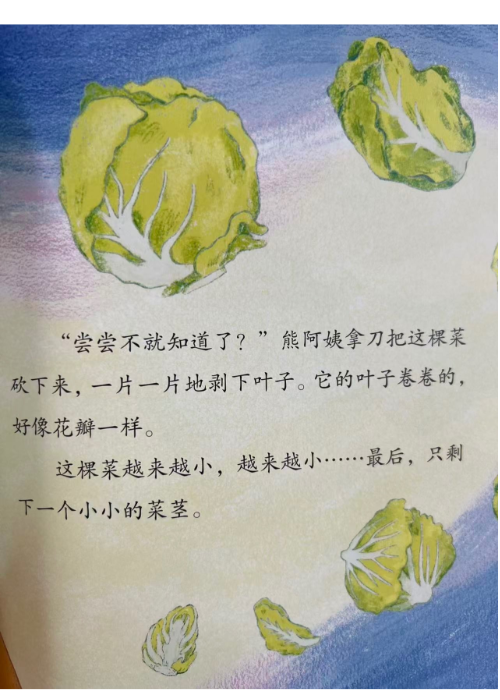 “尝尝不就知道了？”熊阿姨拿刀把这棵菜
砍下来，一片一片地剥下叶子。它的叶子卷卷的，
好像花瓣一样。
这棵菜越来越小，越来越小……最后，只剩
下一个小小的菜茎。